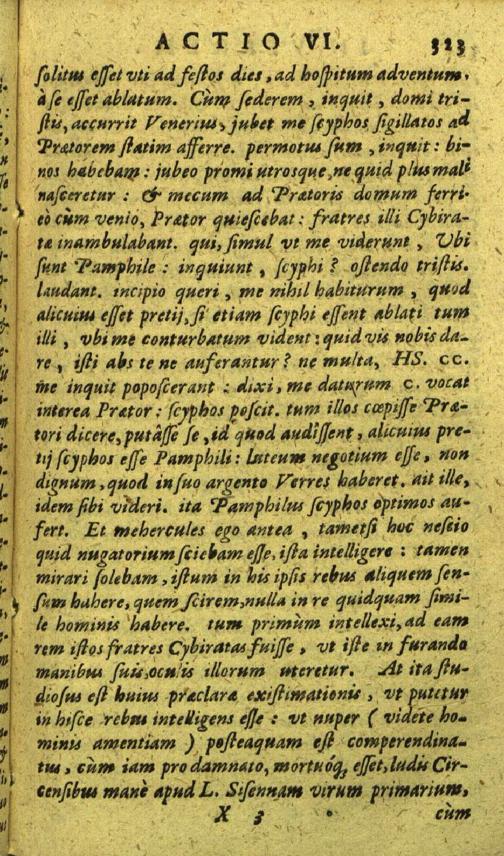 ACTIO VI. 323
ſolitus eſſet vti ad feſtos dies, ad hoſpitum adventum,
à ſe eſſet ablatum. Cùm ſederem, inquit, domi tri-
ſtis, accurrit Venerius, jubet me ſcyphos ſigillatos ad
Prætorem ſtatim afferre. permotus ſum, inquit: bi-
nos habebam: jubeo promi utroſque, ne quid plus mali
naſceretur: & mecum ad Prætoris domum ferri.
eò cùm venio, Prætor quieſcebat: fratres illi Cybira-
tæ inambulabant. qui, ſimul vt me viderunt, Ubi
ſunt Pamphile: inquiunt, ſcyphi? oſtendo triſtis.
laudant. incipio queri, me nihil habiturum, quod
alicuius eſſet pretij, ſi etiam ſcyphi eſſent ablati tum
illi, vbi me conturbatum vident: quid vis nobis da-
re, iſti abs te ne auferantur? ne multa, HS. CC.
me inquit popoſcerant: dixi, me daturum C. vocat
interea Prætor: ſcyphos poſcit. tum illos cœpiſſe Præ-
tori dicere, putâſſe ſe, id quod audîſſent, alicuius pre-
tij ſcyphos eſſe Pamphili: luteum negotium eſſe, non
dignum, quod in ſuo argento Verres haberet. ait ille,
idem ſibi videri. ita Pamphilus ſcyphos optimos au-
fert. Et mehercules ego antea, tametſi hoc neſcio
quid nugatorium ſciebam eſſe, iſta intelligere: tamen
mirari ſolebam, iſtum in his ipſis rebus aliquem ſen-
ſum habere, quem ſcirem, nulla in re quidquam ſimi-
le hominis habere. tum primùm intellexi, ad eam
rem iſtos fratres Cybiratas fuiſſe, vt iſte in furando
manibus ſuis, oculis illorum uteretur. At ita ſtu-
dioſus eſt huius præclaræ exiſtimationis, vt putetur
in hiſce rebus intelligens eſſe: vt nuper (videte ho-
minis amentiam) poſteaquam eſt comperendina-
tus, cùm iam pro damnato, mortuóq; eſſet, ludis Cir-
cenſibus manè apud L. Siſennam virum primarium,
X 3 cùm